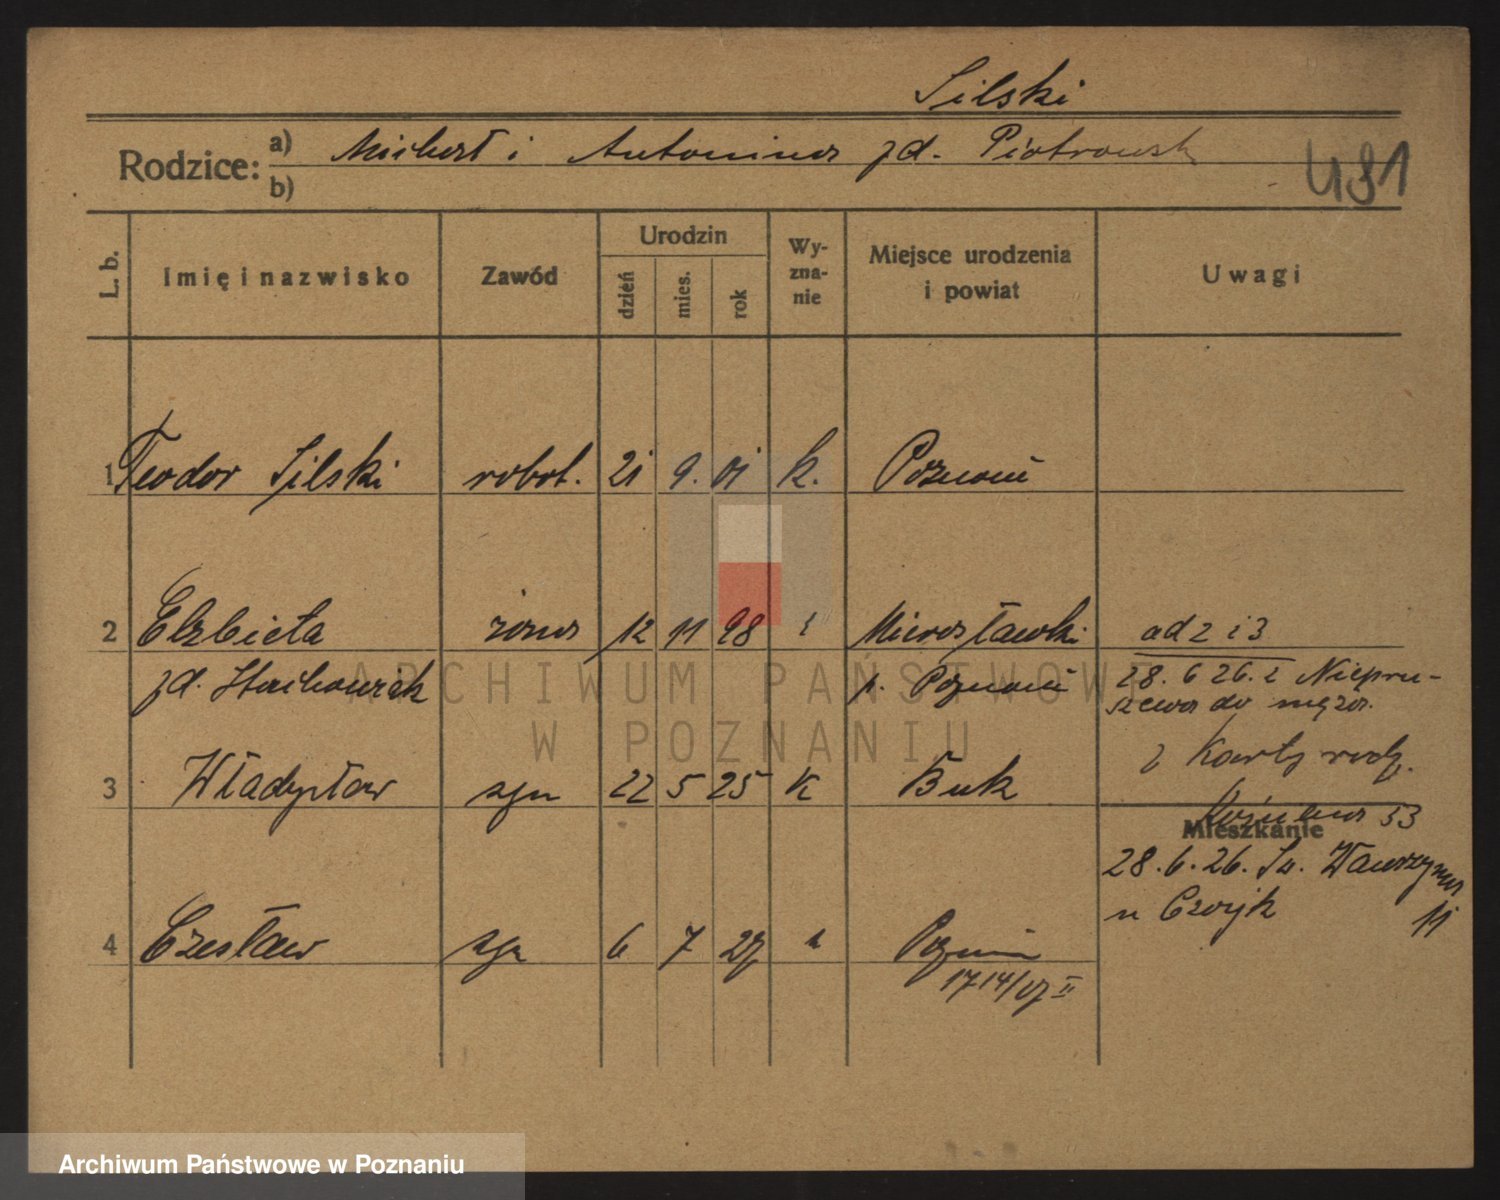 Silski
Rodzice: a) Michał i Antonina zd. Piotrowsk
b)
491
L. b.
Imię i nazwisko
Zawód
Urodzin
dzień
mies.
rok
Wy-
zna-
nie
Miejsce urodzenia
i powiat
Uwagi
1 Teodor Silski robot. 21 9. 01 k. Poznań
2 Elżbieta żona 12 11 98 Mirosławki ad 2 i 3
zd. Stachowiak p. Poznań 28. 6 26. z Niepru-
szewa do męża.
z Karty rodz.
3 Władysław syn 22 5 25 k Buk
53
Mieszkanie
28. 6. 26. Św. Wawrzyńca
u Czwójk 11
4 Czesław syn 6 7 27 k Poznań
1714/27 II
ARCHIWUM PAŃSTWOWE
W POZNANIU
Archiwum Państwowe w Poznaniu